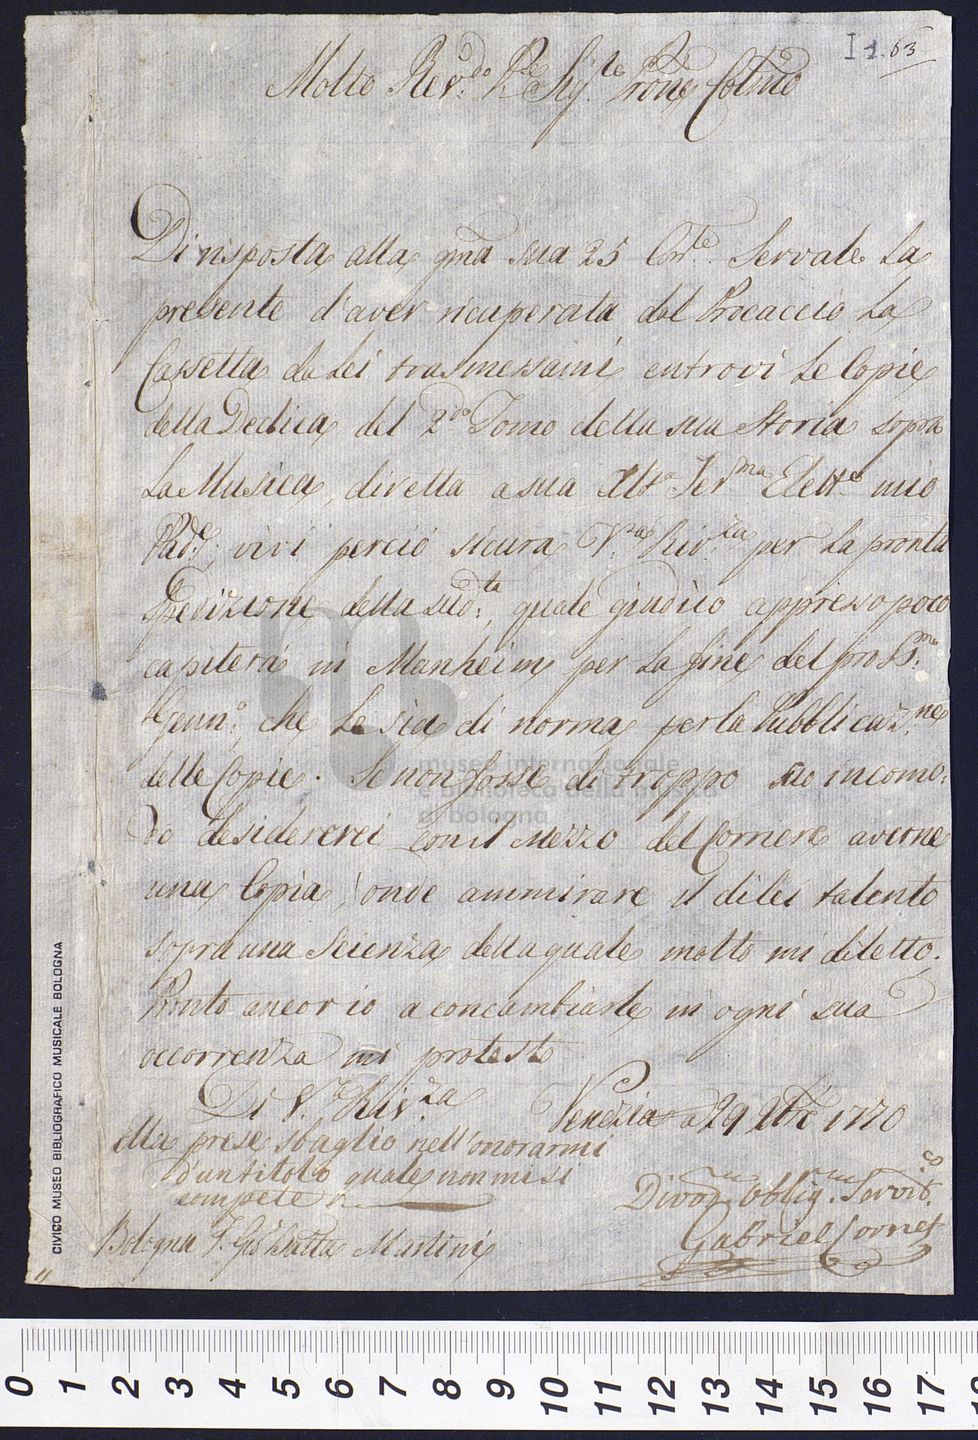 I 1. 63
Molto Rev.do P.re Sig.re Prone Colmo
Di risposta alla gma sua 25 Corr.te Servale La
presente d'aver ricuperata dal Procaccio La
Cassetta da Lei trasmessami entrovi Le Copie
della Dedica del 2.do Tomo della sua Storia sopra
La Musica, diretta a sua Alt.a Ser.ma Elett.e mio
Pad.e; vivi perciò sicura V.ra Riv.za per La pronta
Spedizione della sud.ta, quale giudico appresso poco
capiterà in Manheim per La fine del pross.mo
Genn.o, che Le sia di norma per la Pubblicaz.ne
delle Copie. Se non fosse di troppo suo incomo:
do desidererei con il Mezzo del Corriere averne
una Copia, onde ammirare il di lei talento
sopra una Scienza della quale molto mi diletto.
Pronto ancor io a concambiarle in ogni sua
occorrenza mi protesto
Di V.ra Riv.za
Venezia a 29 Xbre 1770
Ella prese sbaglio nell'onorarmi
d'un titolo quale non mi si
compete
Divot.mo Obblig.mo Servit.e
Gabriel Cornet
Bologna P. Gio Batta Martini
CIVICO MUSEO BIBLIOGRAFICO MUSICALE BOLOGNA
museo internazionale
e biblioteca della musica
di bologna
0 1 2 3 4 5 6 7 8 9 10 11 12 13 14 15 16 17 18